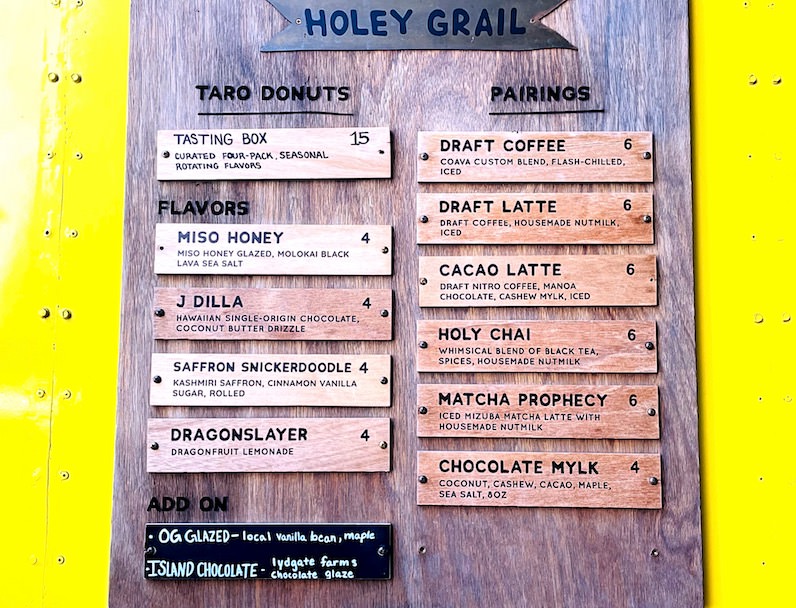 HOLEY GRAIL
TARO DONUTS
TASTING BOX 15
CURATED FOUR-PACK, SEASONAL
ROTATING FLAVORS
FLAVORS
MISO HONEY 4
MISO HONEY GLAZED, MOLOKAI BLACK
LAVA SEA SALT
J DILLA 4
HAWAIIAN SINGLE-ORIGIN CHOCOLATE,
COCONUT BUTTER DRIZZLE
SAFFRON SNICKERDOODLE 4
KASHMIRI SAFFRON, CINNAMON VANILLA
SUGAR, ROLLED
DRAGONSLAYER 4
DRAGONFRUIT LEMONADE
ADD ON
• OG GLAZED - local vanilla bean, maple
• ISLAND CHOCOLATE - lydgate farms
chocolate glaze
PAIRINGS
DRAFT COFFEE 6
COAVA CUSTOM BLEND, FLASH-CHILLED,
ICED
DRAFT LATTE 6
DRAFT COFFEE, HOUSEMADE NUTMILK,
ICED
CACAO LATTE 6
DRAFT NITRO COFFEE, MANOA
CHOCOLATE, CASHEW MYLK, ICED
HOLY CHAI 6
WHIMSICAL BLEND OF BLACK TEA,
SPICES, HOUSEMADE NUTMILK
MATCHA PROPHECY 6
ICED MIZUBA MATCHA LATTE WITH
HOUSEMADE NUTMILK
CHOCOLATE MYLK 4
COCONUT, CASHEW, CACAO, MAPLE,
SEA SALT, 8OZ